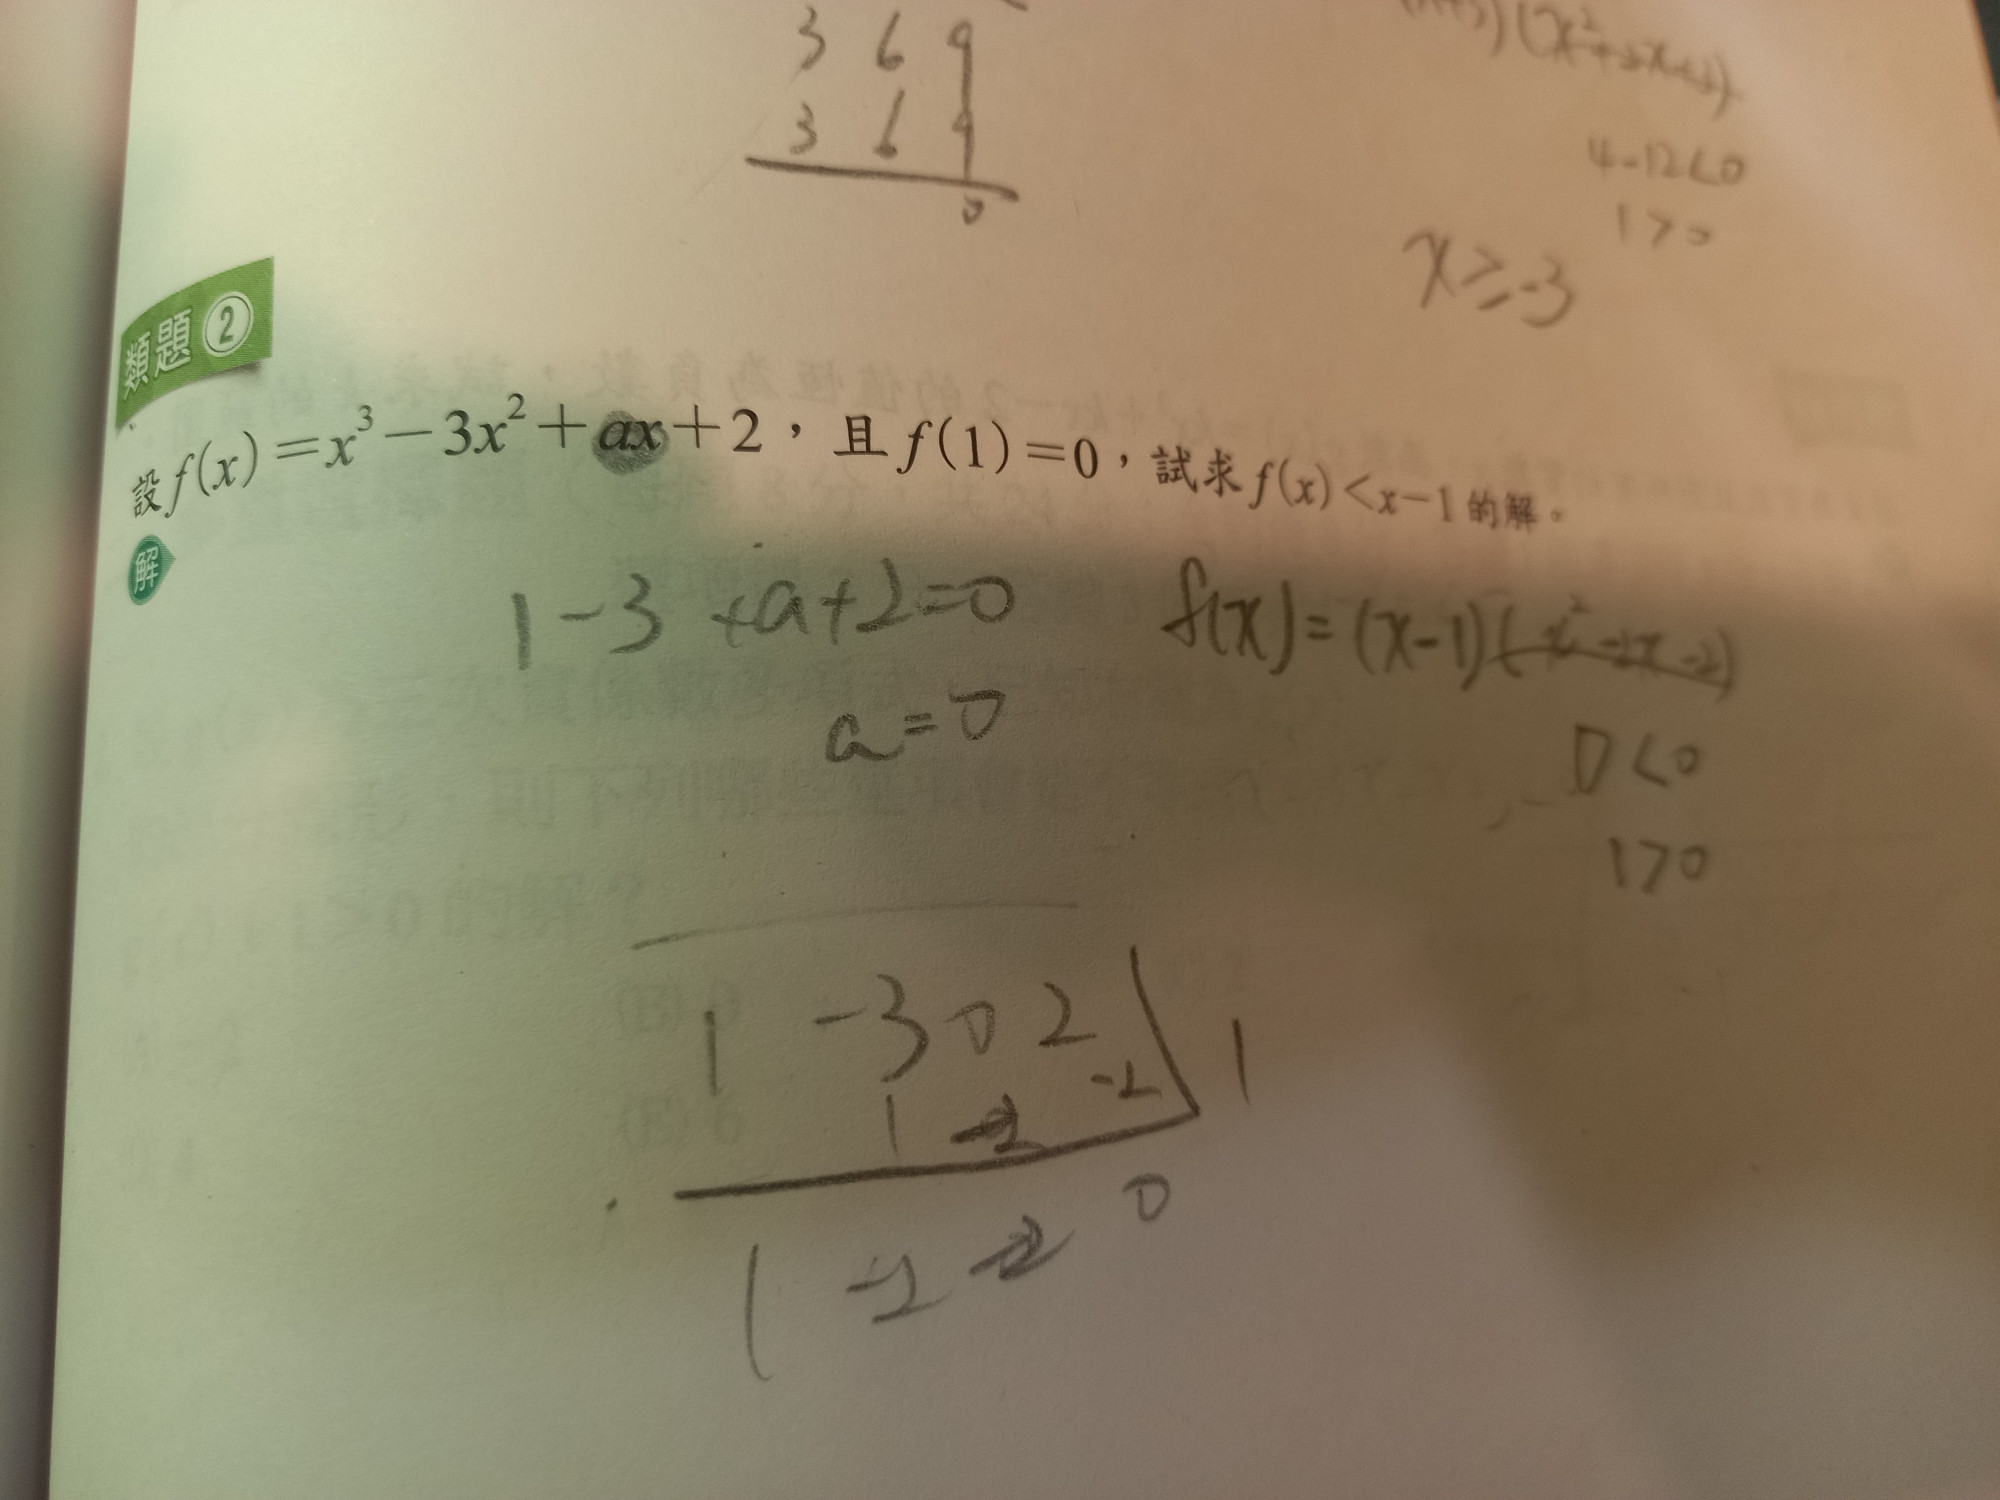 3 6 9
3 6 9
0
4-12<0
1>0
x≥-3
類題 ②
設 f(x)=x³-3x²+ax+2，且 f(1)=0，試求 f(x)<x-1 的解。
解
1-3+a+2=0
a=0
f(x)=(x-1)(x²-2x-2)
D<0
1>0
1 -3 0 2 1
1 -2 -2
1 -2 -2 0